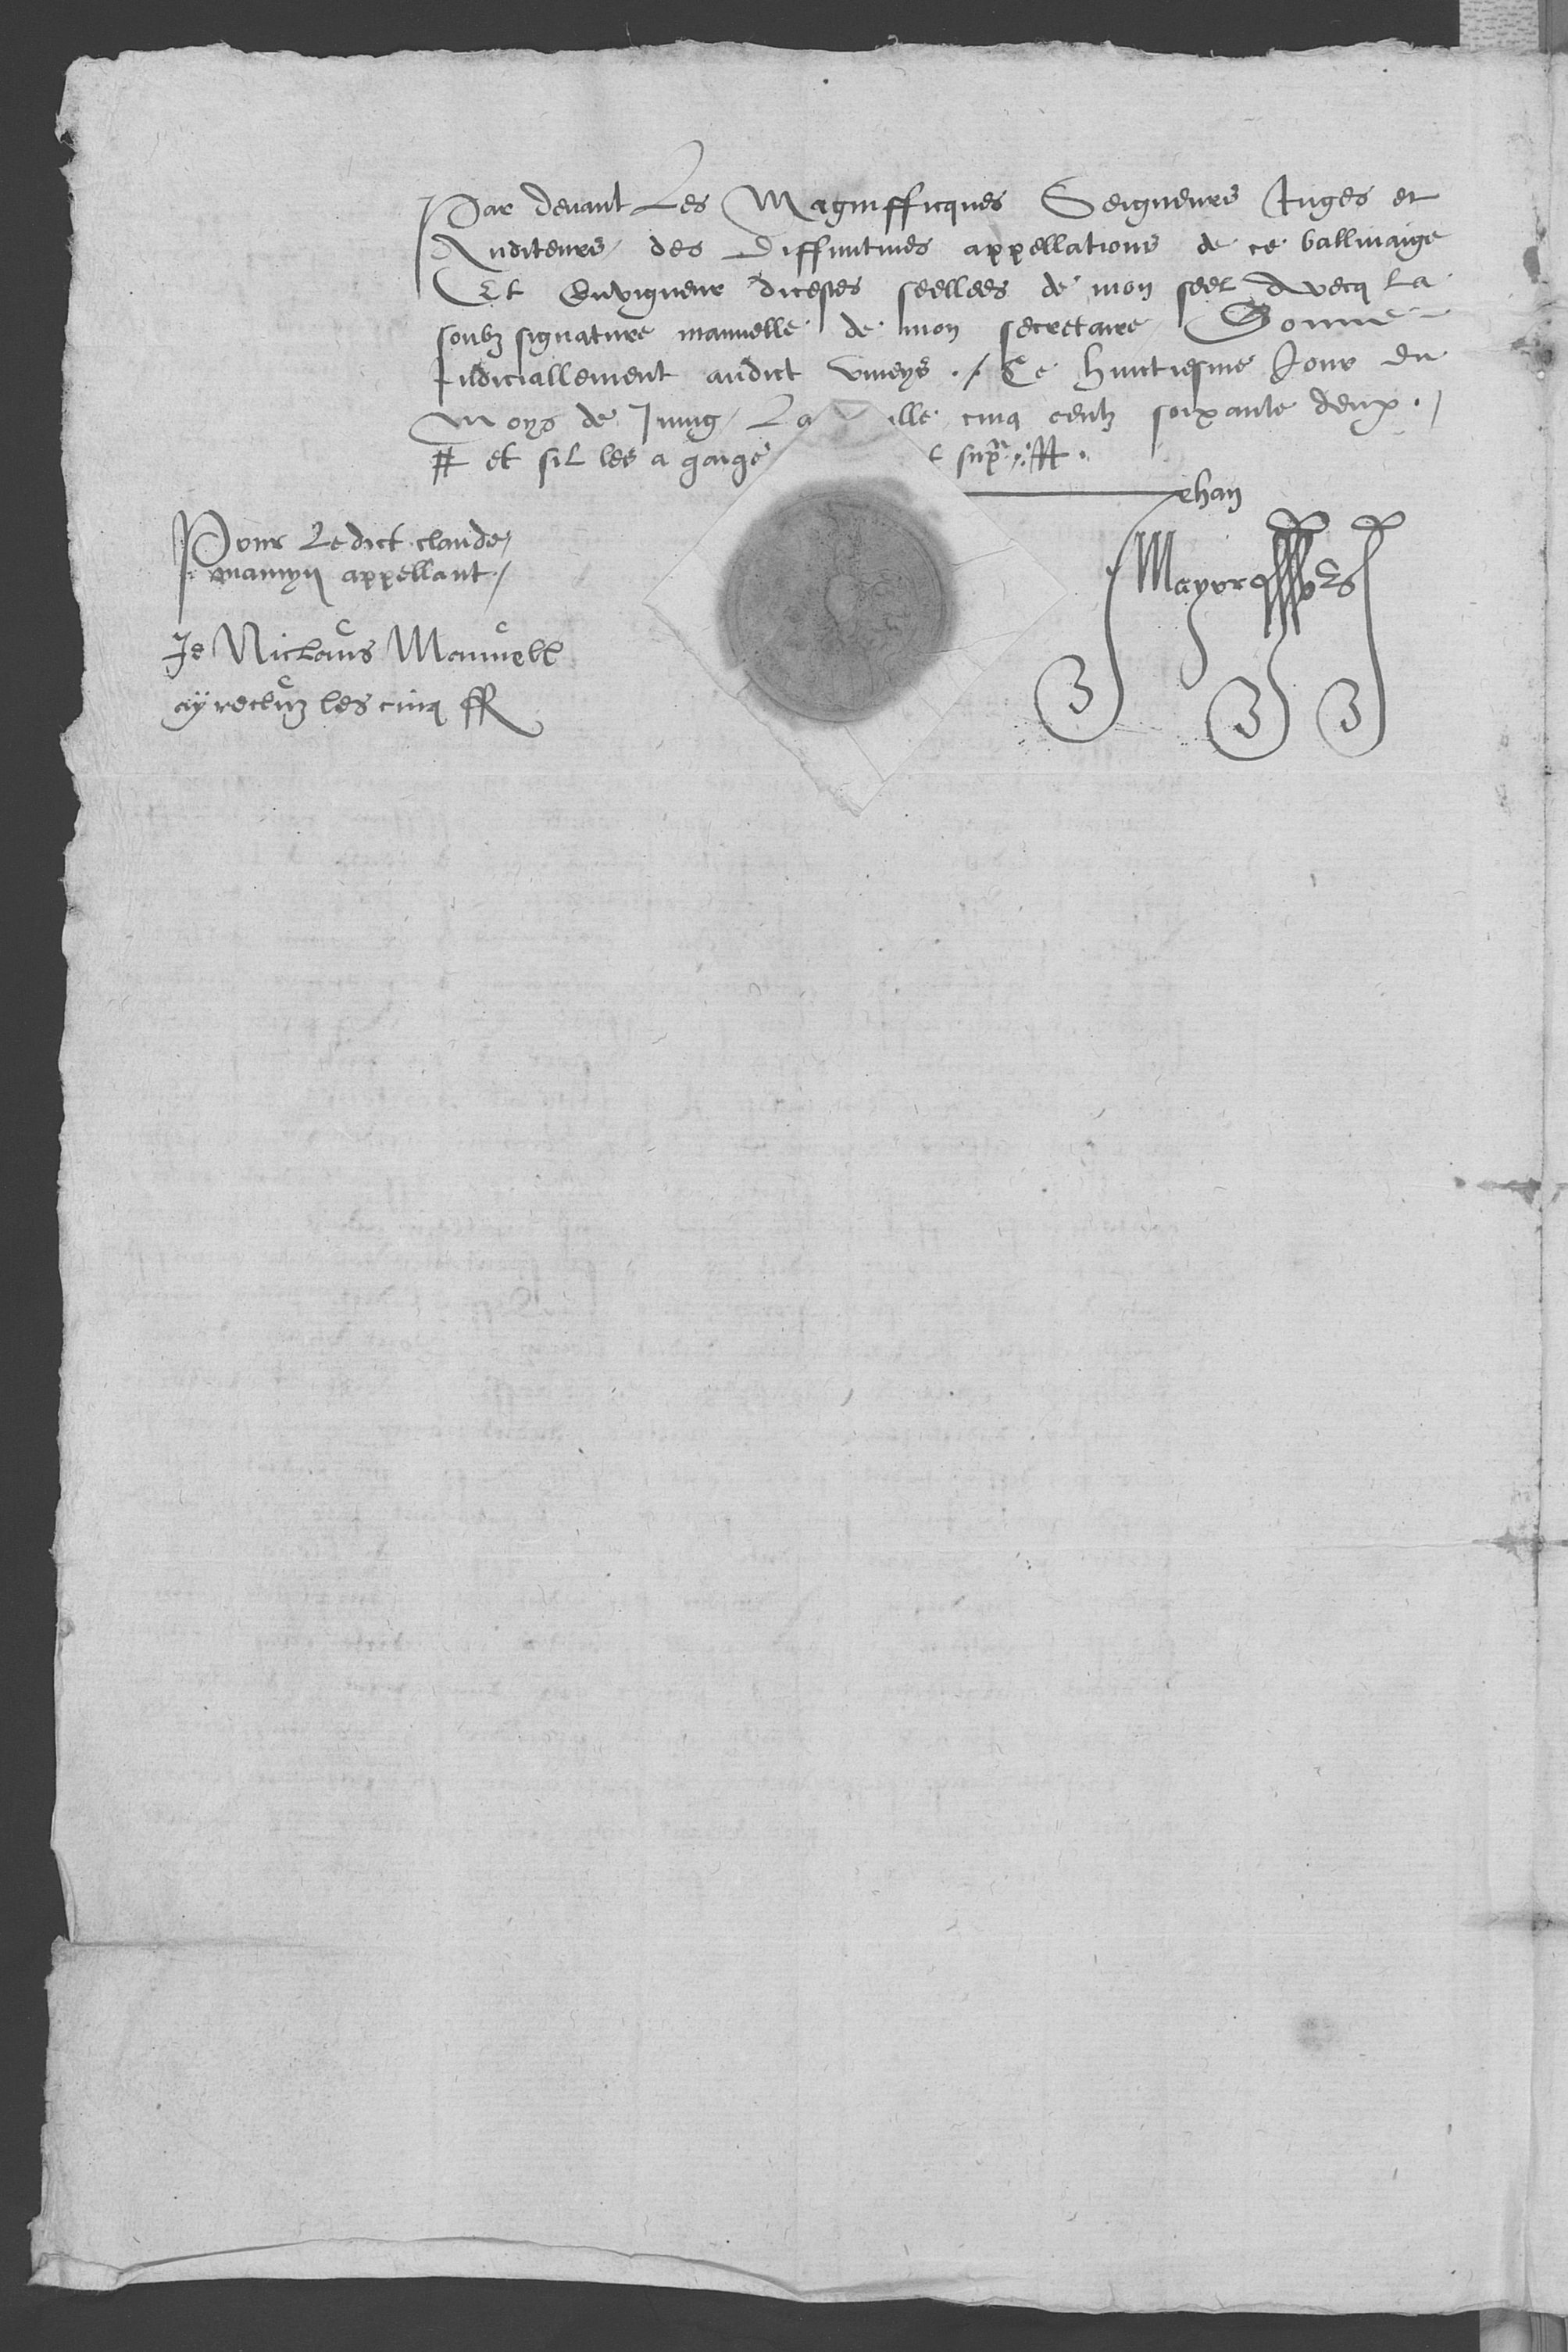 Par devant Les Magnifficques Seigneurs Juges et
Auditeurs des Diffinitives appellations de ce ballivaige
Et Envigueur dicestes seellees de mon seel Avecq La
soubz signature manuelle de mon secretaire Donne
Judiciallement audict Viveys ./. Ce huictiesme Jour du
Moys de Juing La ille cinq centz soixante deux ./
# et sil les a gaige sup.a ./. #.
Jehan
Mayor
Pour Ledict claude
mamyn appellant /
Je Niclaus Manuell
ay receuz les cinq ff